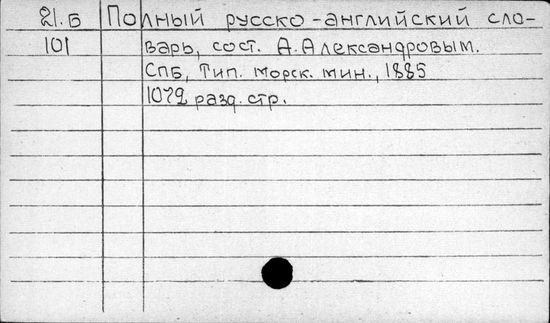 21.Б Полный русско-английский сло-
101 варь, сост. А.Александровым.
СПБ, Тип. Морск. мин., 1885
1072 разд. стр.